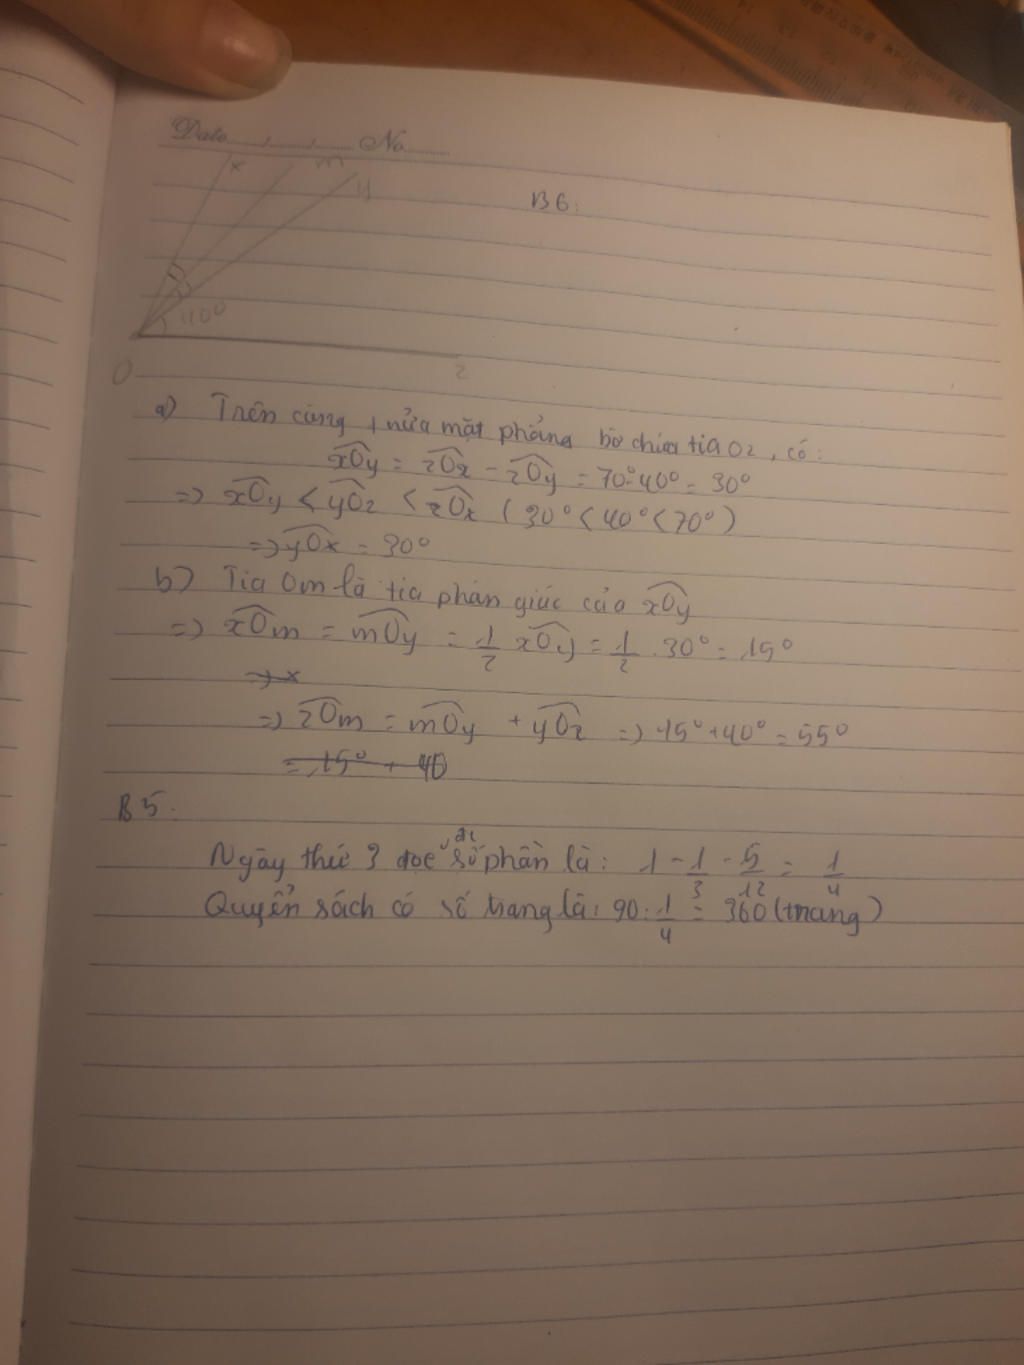 Date , , No
x m y
B6:
40°
O z
a) Trên cùng 1 nửa mặt phẳng bờ chứa tia Oz, có:
xOy = zOx - zOy = 70°-40° = 30°
=> xOy < yOz < zOx (30° < 40° < 70°)
=> yOx = 30°
b) Tia Om là tia phân giác của xOy
=> xOm = mOy = 1/2 xOy = 1/2 . 30° = 15°
=> x
=> zOm = mOy + yOz => 15°+40° = 55°
= 15° + 40
B5:
Ngày thứ 3 đọc đc số phần là: 1 - 1/3 - 5/12 = 1/4
Quyển sách có số trang là: 90 : 1/4 = 360 (trang)